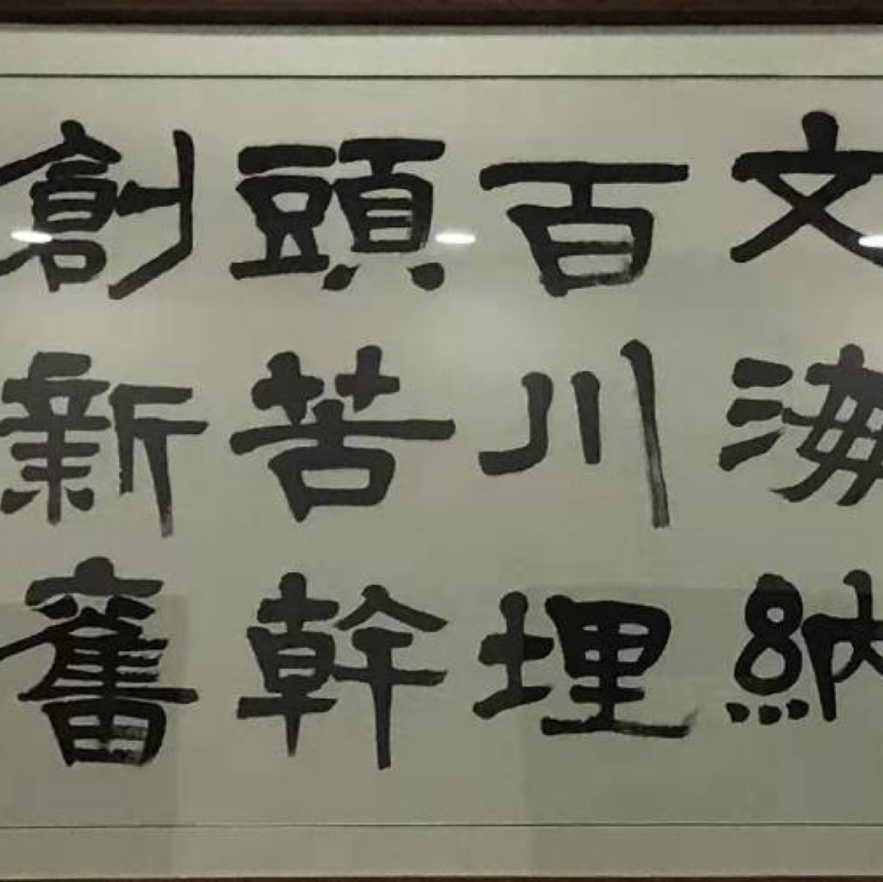 文海納
百川埋
頭苦幹
創新奮